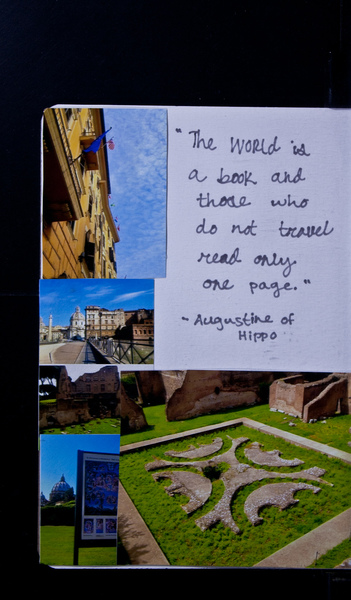 "The WORLD is
a book and
those who
do not travel
read only
one page."
- Augustine of
Hippo